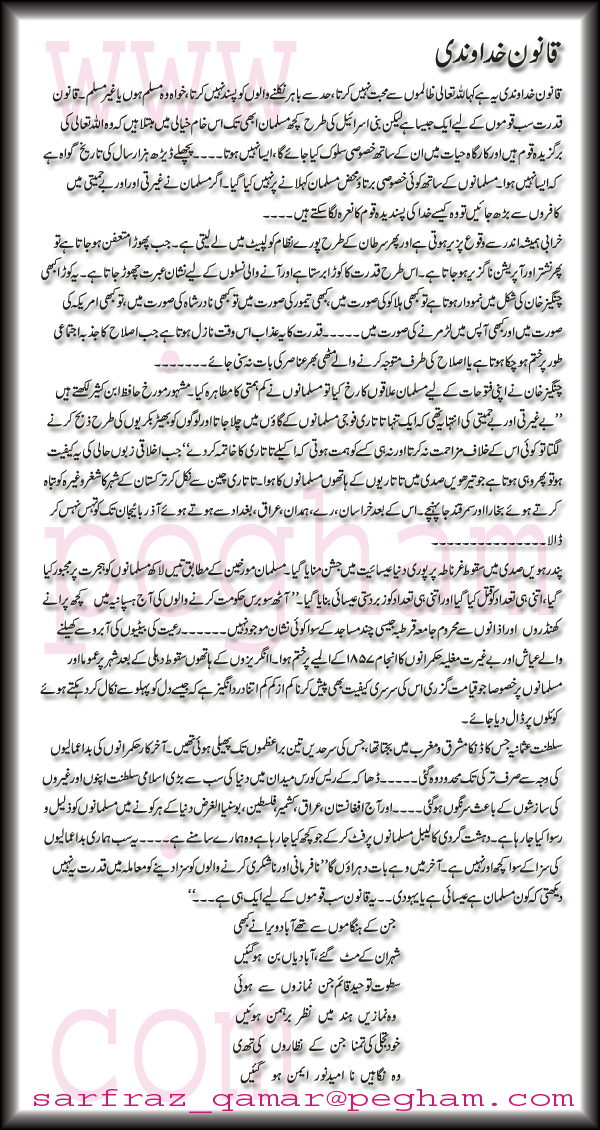 قانون خداوندی
قانون خداوندی یہ ہے کہ اللہ تعالی ظالموں سے محبت نہیں کرتا، حد سے باہر نکلنے والوں کو پسند نہیں کرتا، خواہ وہ مسلم ہوں یا غیر مسلم۔ قانون
قدرت سب قوموں کے لیے ایک جیسا ہے لیکن بنی اسرائیل کی طرح کچھ مسلمان ابھی تک اس خام خیالی میں مبتلا ہیں کہ وہ اللہ تعالی کی
برگزیدہ قوم ہیں اور کارگاہ حیات میں ان کے ساتھ خصوصی سلوک کیا جائے گا، ایسا نہیں ہوتا۔۔۔۔ پچھلے ڈیڑھ ہزار سال کی تاریخ گواہ ہے
کہ ایسا نہیں ہوا۔ مسلمانوں کے ساتھ کوئی خصوصی برتاؤ محض مسلمان کہلانے پر نہیں کیا گیا۔ اگر مسلمان بے غیرتی اور اور بے حمیتی میں
کافروں سے بڑھ جائیں تو وہ کیسے خدا کی پسندیدہ قوم کا نعرہ لگا سکتے ہیں۔۔۔۔
خرابی ہمیشہ اندر سے وقوع پزیر ہوتی ہے اور پھر سرطان کے طرح پورے نظام کو لپیٹ میں لے لیتی ہے۔ جب پھوڑا متعفن ہو جاتا ہے تو
پھر نشتر اور آپریشن ناگزیر ہو جاتا ہے۔ اس طرح قدرت کا کوڑا برستا ہے اور آنے والی نسلوں کے لیے نشان عبرت چھوڑ جاتا ہے۔ یہ کوڑا کبھی
چنگیز خان کی شکل میں نمودار ہوتا ہے تو کبھی ہلاکو کی صورت میں، کبھی تیمور کی صورت میں تو کبھی نادر شاہ کی صورت میں، تو کبھی امریکہ کی
صورت میں اور کبھی آپس میں لڑ مرنے کی صورت میں۔۔۔۔۔ قدرت کا یہ عذاب اس وقت نازل ہوتا ہے جب اصلاح کا جذبہ اجتماعی
طور پر ختم ہو چکا ہوتا ہے یا اصلاح کی طرف متوجہ کرنے والے مٹھی بھر عناصر کی بات نہ سنی جائے۔۔۔۔۔۔۔
چنگیز خان نے اپنی فتوحات کے لیے مسلمان علاقوں کا رخ کیا تو مسلمانوں نے کم ہمتی کا مظاہرہ کیا۔ مشہور مورخ حافظ ابن کثیر لکھتے ہیں
’’بے غیرتی اور بے حمیتی کی انتہا یہ تھی کہ ایک تنہا تاتاری فوجی مسلمانوں کے گاؤں میں چلا جاتا اور لوگوں کو بھیڑ بکریوں کی طرح ذبح کرنے
لگتا تو کوئی اس کے خلاف مزاحمت نہ کرتا اور نہ ہی کسے کو ہمت ہوتی کہ اکیلے تاتاری کا خاتمہ کر دے‘‘ جب اخلاقی زبوں حالی کی یہ کیفیت
ہو تو پھر وہی ہوتا ہے جو تیرھویں صدی میں تاتاریوں کے ہاتھوں مسلمانوں کا ہوا۔ تاتاری چین سے نکل کر ترکستان کے شہر کاشغر وغیرہ کو تباہ
کرتے ہوئے بخارا اور سمرقند جا پہنچے۔ اس کے بعد خراسان، رے، ہمدان، عراق، بغداد سے ہوتے ہوئے آذربائیجان تک کو تہس نہس کر
ڈالا۔۔۔۔۔۔۔۔۔۔۔۔۔۔۔
پندرہویں صدی میں سقوط غرناطہ پر پوری دنیا عیسائیت میں جشن منایا گیا۔ مسلمان مورخین کے مطابق تیس لاکھ مسلمانوں کو ہجرت پر مجبور کیا
گیا، اتنی ہی تعداد کو قتل کیا گیا اور اتنی ہی تعداد کو زبردستی عیسائی بنایا گیا۔ ’’آٹھ سو برس حکومت کرنے والوں کی آج ہسپانیہ میں کچھ پرانے
کھنڈروں اور اذانوں سے محروم جامعہ قرطبہ جیسی چند مساجد کے سوا کوئی نشان موجود نہیں۔۔۔۔۔۔ رعیت کی بیٹیوں کی آبرو سے کھیلنے
والے عیاش اور بے غیرت مغلیہ حکمرانوں کا انجام ۱۸۵۷ کے المیے پر ختم ہوا۔ انگریزوں کے ہاتھوں سقوط دہلی کے بعد شہر پر عموما ور
مسلمانوں پر خصوصا جو قیامت گزری اس کی سرسری کیفیت بھی پیش کرنا کم از کم اتنا درد انگیز ہے کہ جیسے دل کو پہلو سے نکال کر دہکتے ہوئے
کوئلوں پر ڈال دیا جائے۔
سلطنت عثمانیہ جس کا ڈنکا مشرق و مغرب میں بجتا تھا، جس کی سرحدیں تین براعظموں تک پھیلی ہوئی تھیں۔ آخر کار حکمرانوں کی بد اعمالیوں
کی وجہ سے صرف ترکی تک محدود ہو گئی۔۔۔۔۔ ڈھاکہ کے ریس کورس میدان میں دنیا کی سب سے بڑی اسلامی سلطنت اپنوں اور غیروں
کی سازشوں کے باعث سرنگوں ہو گئی۔۔۔۔ اور آج افغانستان، عراق، کشمیر، فلسطین، بوسنیا الغرض دنیا کے ہر کونے میں مسلمانوں کو ذلیل و
رسوا کیا جا رہا ہے۔ دہشت گردی کا لیبل مسلمانوں پر فٹ کر کے جو کچھ کیا جا رہا ہے وہ ہمارے سامنے ہے۔۔۔۔ یہ سب ہماری بد اعمالیوں
کی سزا کے سوا کچھ اور نہیں ہے۔ آخر میں وہے بات دہراؤں گا ’’نافرمانی اور ناشکری کرنے والوں کو سزا دیئے کو معاملہ میں قدرت یہ نہیں
دیکھتی کہ کون مسلمان ہے عیسائی ہے یا یہودی۔۔ یہ قانون سب قوموں کے لیے ایک ہی ہے۔۔۔‘‘
جن کے ہنگاموں سے تھے آباد ویرانے کبھی
شہر ان کے مٹ گئے، آبادیاں بن ہو گئیں
سطوت توحید قائم جن نمازوں سے ہوئی
وہ نمازیں ہند میں نظر برہمن ہوئیں
خود تجلی کی تمنا جن کے نظاروں کی تھی
وہ نگاہیں نا امید نور ایمن ہو گئیں
sarfraz_qamar@pegham.com
www.
pegham
.com